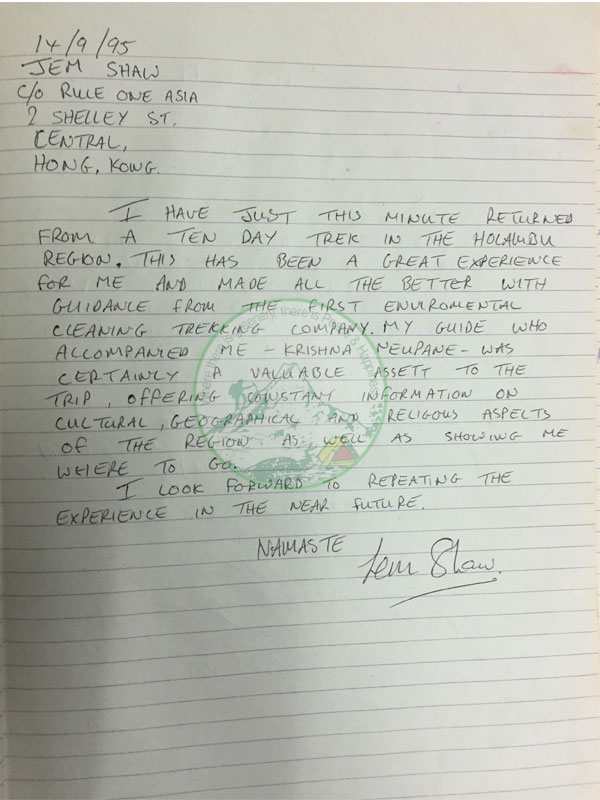 14/9/95
JEM SHAW
C/O RULE ONE ASIA
2 SHELLEY ST.
CENTRAL,
HONG, KONG.
I HAVE JUST THIS MINUTE RETURNED
FROM A TEN DAY TREK IN THE HOLAMBU
REGION. THIS HAS BEEN A GREAT EXPERIENCE
FOR ME AND MADE ALL THE BETTER WITH
GUIDANCE FROM THE FIRST ENVIROMENTAL
CLEANING TREKKING COMPANY. MY GUIDE WHO
ACCOMPANIED ME - KRISHNA NEUPANE - WAS
CERTAINLY A VALUABLE ASSETT TO THE
TRIP, OFFERING CONSTANT INFORMATION ON
CULTURAL, GEOGRAPHICAL AND RELIGOUS ASPECTS
OF THE REGION AS WELL AS SHOWING ME
WHERE TO GO.
I LOOK FORWARD TO REPEATING THE
EXPERIENCE IN THE NEAR FUTURE.
NAMASTE Jem Shaw.